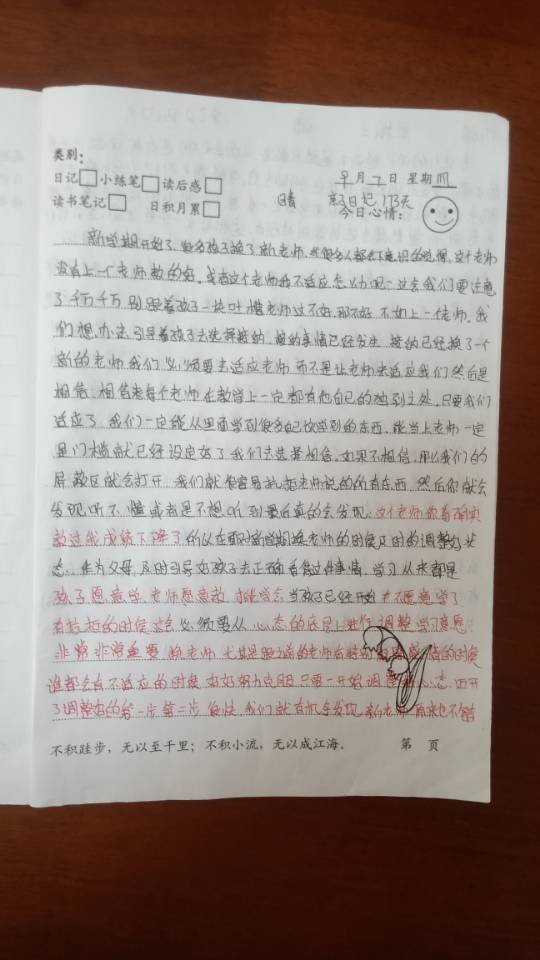 类别：
日记 小练笔 读后感 月 7 日 星期四
读书笔记 日积月累 晴 日记173天
今日心情：
新学期开始了，很多孩子换了新老师，很多人都会下意识的觉得，这个老师
没有上一个老师教的好，或者这个老师我不适应怎么办呢？这会我们要注意
了千万千万别跟着孩子一块吐槽老师这不好，那不好，不如上一任老师。我
们想办法引导着孩子去选择接纳，接纳事情已经发生，接纳已经换了一个
新的老师，我们必须要去适应老师而不是让老师来适应我们然后是
相信，相信每个老师在教学上一定都有他自己的独到之处，只要我们
适应了，我们一定能从里面学到很多自己没学到的东西，能当上老师一定
是门槛就已经设定好了我们去选择相信，如果不相信，那么我们的
屏蔽区就会打开，我们就很容易抗拒老师说的所有东西，然后你就会
发现听不懂或者是不想听到最后真的会发现，这个老师你看确实
教这我成绩下降了所以在面对新学期换老师的时候及时的调整好状
态，作为父母，及时引导好孩子去正确看待这件事情，学习从来都是
孩子愿意学，老师愿意教，才能学会，当孩子已经开始不愿意学了
有抗拒的时候 必须要从心态的 上进行调整学习意愿
非常非常重要，新老师，尤其是跟之前的老师 的时候
谁都会有不适应的时候，好好努力克服，只要一开始调整 心态，迈开
了调整好的第一步，第二步，很快，我们就有机会发现，新老师 也不错
不积跬步，无以至千里；不积小流，无以成江海。 第 页